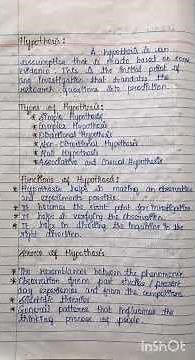 Hypothesis :
A hypothesis is an
assumption that is made based on some
evidence. This is the initial point of
any investigation that translates the
research questions into prediction.
Types of Hypothesis :
* Simple Hypothesis
* Complex Hypothesis
* Directional Hypothesis
* Non-directional Hypothesis
* Null Hypothesis
* Associative and Causal Hypothesis
Functions of Hypothesis :
* Hypothesis helps in making an observation
and experiments possible.
* It becomes the start point for investigation
* It helps in verifying the observation.
* It helps in directing the inquiries in the
right direction.
Sources of Hypothesis
* The resemblance between the phenomenon.
* Observation from past studies, present
day experiences and from the competitors.
* Scientific theories
* General patterns that influences the
thinking process of people.
InShot